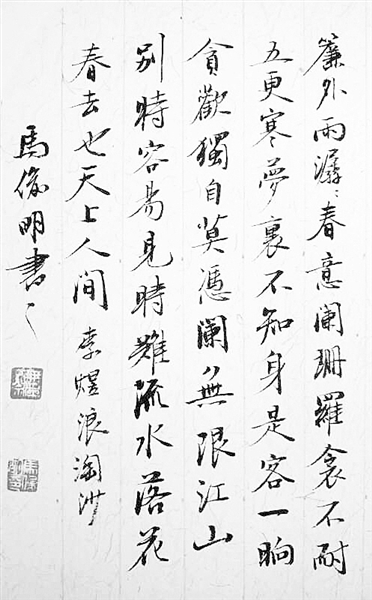 簾外雨潺々春意闌珊羅衾不耐
五更寒夢裏不知身是客一晌
貪歡獨自莫憑闌無限江山
別時容易見時難流水落花
春去也天上人間 李煜浪淘沙
馬俊明書